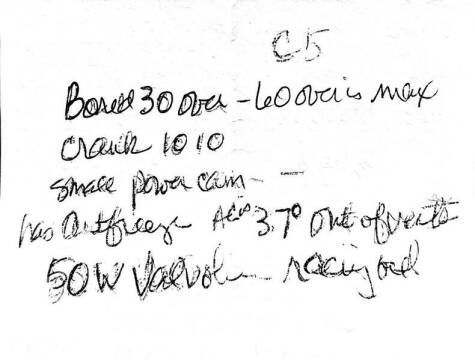 C5
Bored 30 over - 60 over is max
Crank 10 10
small power cam -
has Antifreeze 37° out of
50W Valvoline racing oil